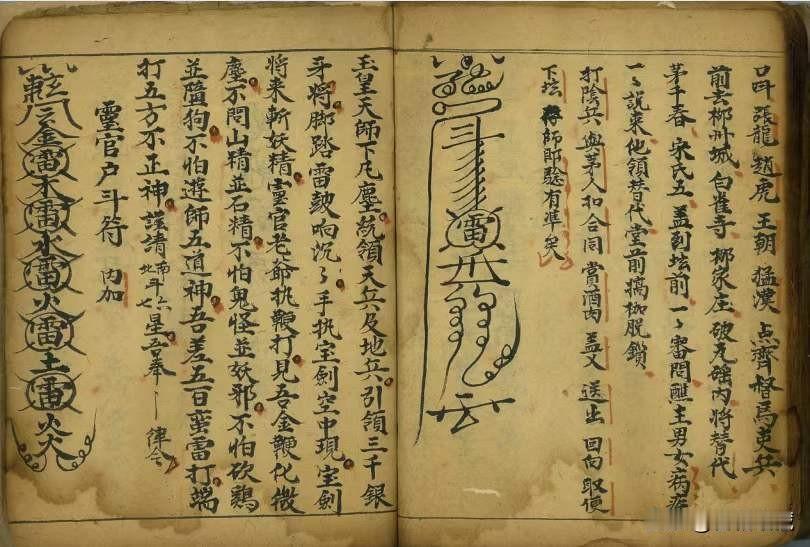 口吽 張龍 趙虎 王朝 猛漢 点齊督馬吏兵
前去柳州城 白雀寺 柳家庄 破瓦磘内 將替代
茅千春 宋氏五 盖到坛前 一〻審問醮主男女病症
一〻說来 他領替代堂前 搞枷脫鎖
打陰兵 與茅人扣合同 賞酒肉 盖又 送出 回向取便
下坛 師即騐有準矣
斗
雷
玉皇天師下凢塵 統領天兵及地兵 引領三千銀
牙將脚踏雷鼓响沉〻 手执宝劍空中現 宝劍
将来斬妖精 靈官老爺执鞭打 見吾金鞭化微
塵 不問山精並石精 不怕鬼怪並妖邪 不怕砍鷄
並隨狗 不怕遊師五道神 吾差五百蛮雷打 端
打五方不正神 謹請南斗六北斗七星 吾奉〻律令
靈官户斗符 内加
金雷木雷水雷火雷土雷